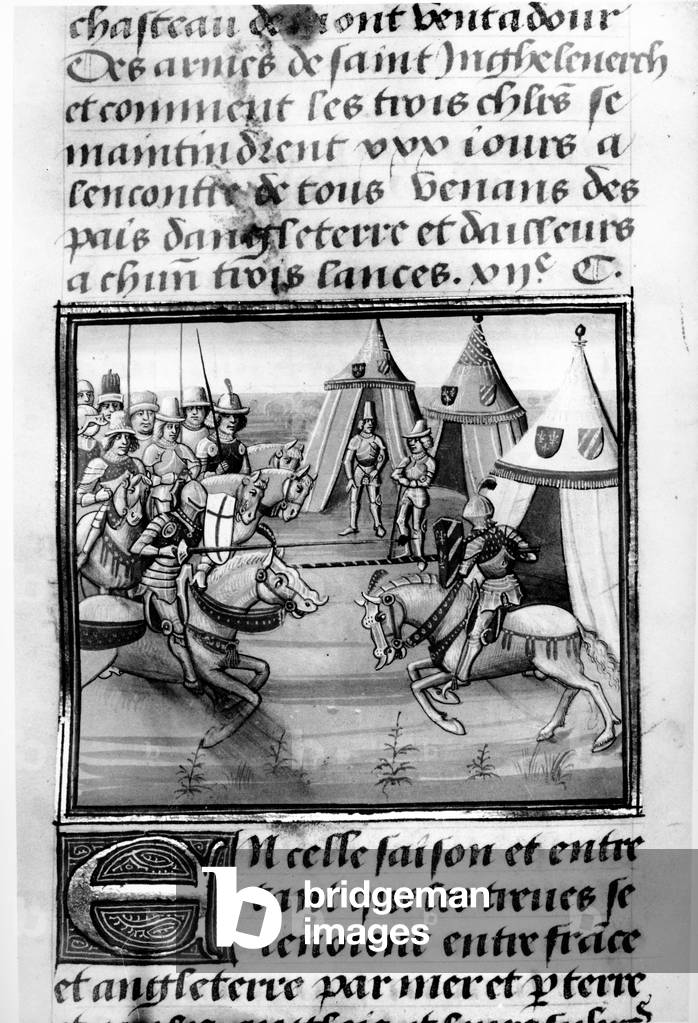 chasteau de mont ventadour
Des armes de saint Inghelenerch
et comment les trois chlrs se
maintindrent xxx iours a
lencontre de tous venans des
pais dangleterre et dailleurs
a chun trois lances. vijc C.
En celle saison et entre
treues se
tenoient entre frãce
et angleterre par mer et p terre
bridgeman
images